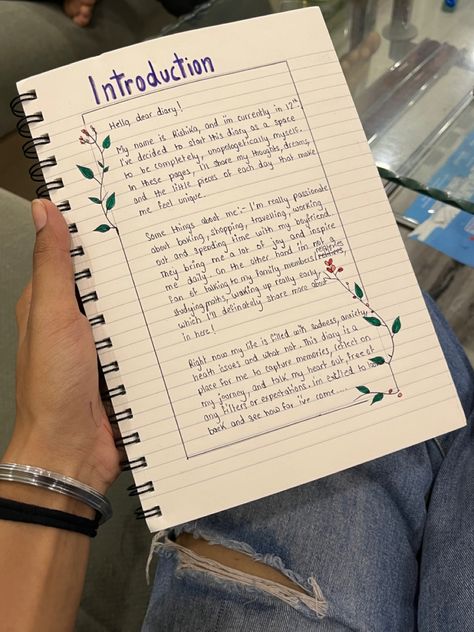 Introduction
Hello, dear diary!
My name is Rishika, and i'm currently in 12th
I've decided to start this diary as a space
to be completely, unapologetically myself.
In these pages, I'll share my thoughts, dreams,
and the little pieces of each day that make
me feel unique.
Some things about me:- I'm really passionate
about baking, shopping, travelling, working
out and spending time with my boyfriend.
They bring me a lot of joy and inspire
me daily. On the other hand i'm not a
fan of talking to my family members/
studying maths, waking up really early,
which I'll definately share more about
in here!
Right now my life is filled with sadness, anxiety
heath issues and what not. This diary is a
place for me to capture memories, reflect on
my journey, and talk my heart out free of
any filters or expectations. i'm excited to look
back and see how far i've come....